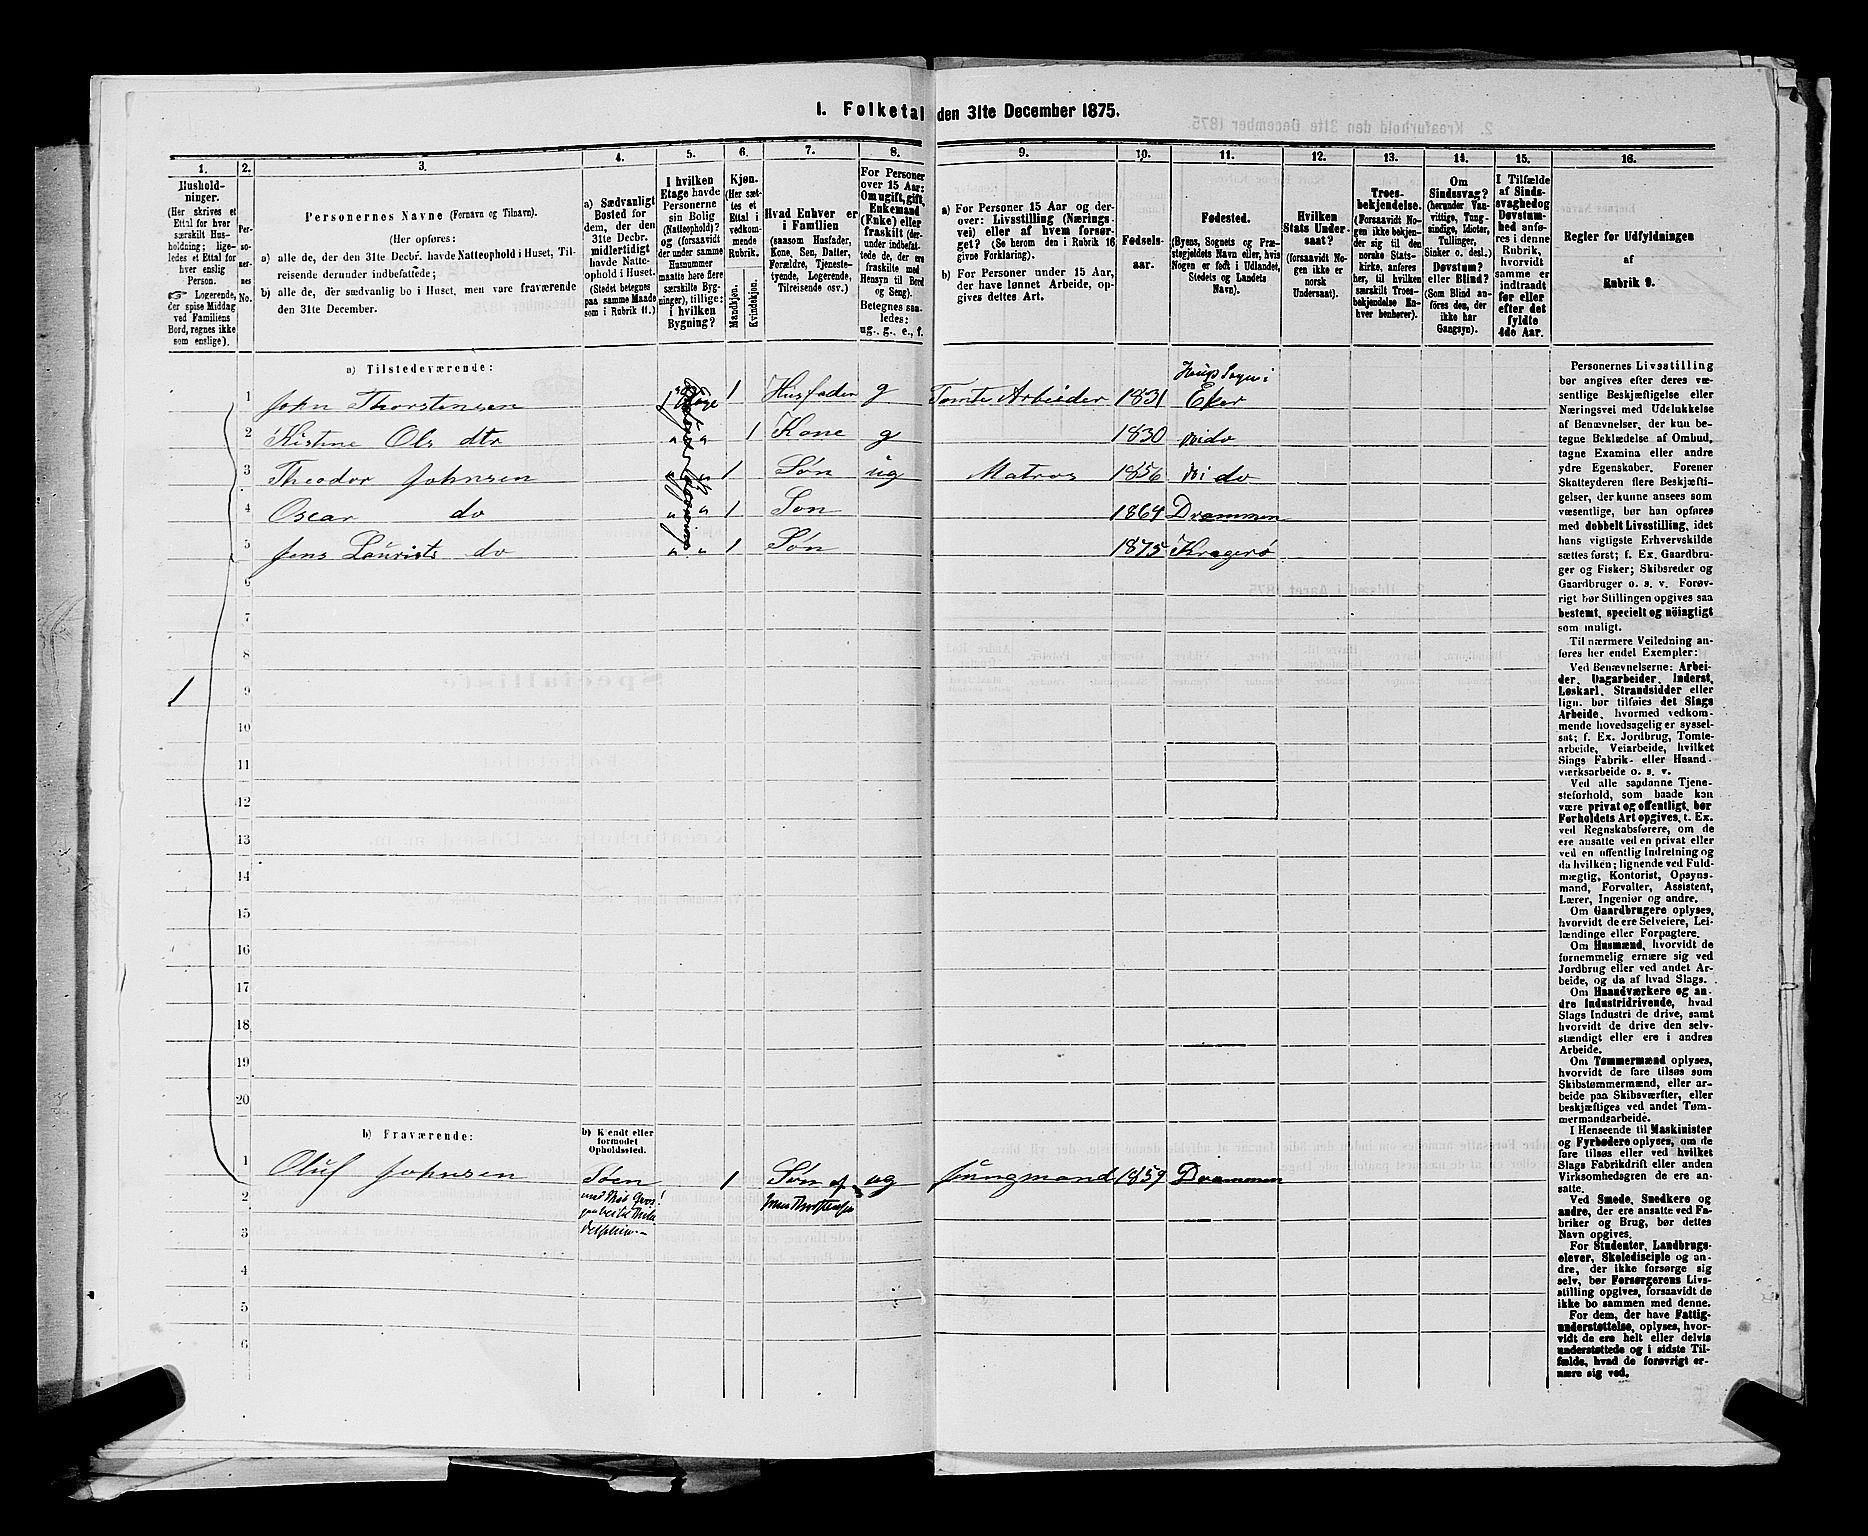 1. Folketal den 31te December 1875.
1.
2.
3.
4.
5.
6.
7.
8.
9.
10.
11.
12.
13.
14.
15.
16.
Hushold-
ninger.
(Her skrives et
Ettal for hver
særskilt Hus-
holdning; lige-
ledes et Ettal for
hver enslig
Person.
☞ Logerende,
der spise Middag
ved Familiens
Bord, regnes ikke
som enslige).
Per-
so-
ner-
nes
No.
Personernes Navne (Fornavn og Tilnavn).
(Her opføres:
a) alle de, der den 31te Decbr. havde Natteophold i Huset, Til-
reisende derunder indbefattede;
b) alle de, der sædvanlig bo i Huset, men vare fraværende
den 31te December.
a) Sædvanligt
Bosted for
dem, der den
31te Decbr.
midlertidigt
havde Natte-
ophold i Huset.
(Stedet betegnes
paa samme Maade
som i Rubrik 11.)
I hvilken
Etage havde
Personerne
sin Bolig
(Natteophold)?
og (forsaavidt
Husnummer
maatte høre flere
særskilte Byg-
ninger), tillige:
i hvilken
Bygning?
Kjøn.
(Her sæt-
tes et
Ettal i
vedkom-
mende
Rubrik.
Mandkjøn.
Kvindekjøn.
Hvad Enhver er
i Familien
(saasom Husfader,
Kone, Søn, Datter,
Forældre, Tjeneste-
tyende, Logerende,
Tilreisende osv.)
For Personer
over 15 Aar:
Om ugift, gift,
Enkemand
(Enke) eller
fraskilt (der-
under indbefat-
tede de, der ere
fraskilte med
Hensyn til Bord
og Seng).
Betegnes saa-
ledes:
ug., g., e., f.
a) For Personer 15 Aar og der-
over: Livsstilling (Nærings-
vei) eller af hvem forsør-
get? (Se herom den i Rubrik 16
givne Forklaring).
b) For Personer under 15 Aar,
der have lønnet Arbeide, op-
gives dettes Art.
Fødsels-
aar.
Fødested.
(Byens, Sognets og Præ-
stegjeldets Navn eller, hvis
Nogen er født i Udlandet,
Stedets og Landets
Navn).
Hvilken
Stats Under-
saat?
(forsaavidt No-
gen ikke er
norsk
Undersaat).
Troes-
bekjendelse.
(Forsaavidt No-
gen ikke bekjen-
der sig til den
norske Stats-
kirke, anføres
her, til hvilken
særskilt Troes-
bekjendelse En-
hver henhører).
Om
Sindssvag?
(herunder Van-
vittige, Tung-
sindige, Idioter,
Tullinger,
Sinker o. desl.)
Døvstum?
eller Blind?
(Som Blind an-
føres den, der
ikke har
Gangsyn).
I Tilfælde
af Sinds-
svaghed og
Døvstum-
hed anfø-
res i denne
Rubrik,
hvorvidt
samme er
indtraadt
før eller
efter det
fyldte
4de Aar.
Regler for Udfyldningen
af
Rubrik 9.
a) Tilstedeværende:
1 John Thorstensen 1ste Etage 1 Husfader g Tomte Arbeider 1831 Eker
2 Kistine Ols dtr " " 1 Kone g 1830 do
3 Theodor Johnsen " " 1 Søn ug Matros 1856 do
4 Oscar do " " 1 Søn 1864 Drammen
5 Jens Laurits do " " 1 Søn 1875 Kragerø
6
7
8
1 9
10
11
12
13
14
15
16
17
18
19
20
b) Fraværende:
b) Kjendt eller
formodet
Opholdssted.
1 Oluf Johnsen Søen 1 Søn af ug Jungmand 1859 Drammen
2
3
4
5
6
Personernes Livsstilling
bør angives efter deres væ-
sentlige Beskjæftigelse eller
Næringsvei med Udelukkelse
af Benævnelser, der kun be-
tegne Beklædelse af Ombud,
tagne Examina eller andre
ydre Egenskaber. Forener
Skatteyderen flere Beskjæfti-
gelser, der kunne ansees som
væsentlige, bør han opføres
med dobbelt Livsstilling, idet
hans vigtigste Erhvervskilde
sættes først; f. Ex. Gaardbru-
ger og Fisker; Skibsreder og
Gaardbruger o. s. v. Forøv-
rigt bør Stillingen opgives saa
bestemt, specielt og nöiagtigt
som muligt.
Til nærmere Veiledning an-
føres her endel Exempler:
Ved Benævnelserne: Arbei-
der, Dagarbeider, Inderst,
Løskarl, Strandsidder eller
lign. bør tilføies det Slags
Arbeide, hvormed vedkom-
mende hovedsagelig er syssel-
sat; f. Ex. Jordbrug, Tomte-
arbeide, Veiarbeide, hvilket
Slags Fabrik- eller Haand-
værksarbeide o. s. v.
Ved alle saadanne Tjene-
steforhold, som baade kan
være privat og offentligt, bør
Forholdets Art opgives, t. Ex.
ved Regnskabsførere, om de
ere ansatte ved en privat eller
ved en offentlig Indretning og
da hvilken; lignende ved Fuld-
mægtig, Kontorist, Opsyns-
mand, Forvalter, Assistent,
Lærer, Ingeniør og andre.
Om Gaardbrugere oplyses,
hvorvidt de ere Selveiere, Lei-
lændinge eller Forpagtere.
Om Husmænd, hvorvidt de
fornemmelig ernære sig ved
Jordbrug eller ved andet Ar-
beide, og da af hvad Slags.
Om Haandværkere og an-
dre Industridrivende, hvad
Slags Industri de drive, samt
hvorvidt de drive den selv-
stændigt eller ere i andres
Arbeide.
Om Tømmermænd oplyses,
hvorvidt de fare tilsøs som
Skibstømmermænd, eller ar-
beide paa Skibsværfter, eller
beskjæftiges ved andet Tøm-
mermandsarbeide.
I Henseende til Maskinister
og Fyrbødere oplyses, om de
fare tilsøs eller ved hvilket
Slags Fabrikdrift eller anden
Virksomhedsgren de ere an-
satte.
Ved Smede, Snedkere og
andre, der ere ansatte ved Fa-
briker og Brug, bør dettes
Navn opgives.
For Studenter, Landbrugs-
elever, Skoledisciple og an-
dre, der ikke forsørge sig
selv, bør Forsørgerens Livs-
stilling opgives, forsaavidt de
ikke bo sammen med denne.
For dem, der have Fattig-
understøttelse, oplyses, hvor-
vidt de ere helt eller delvis
understøttede og i sidste Til-
fælde, hvad de forøvrigt er-
nære sig ved.